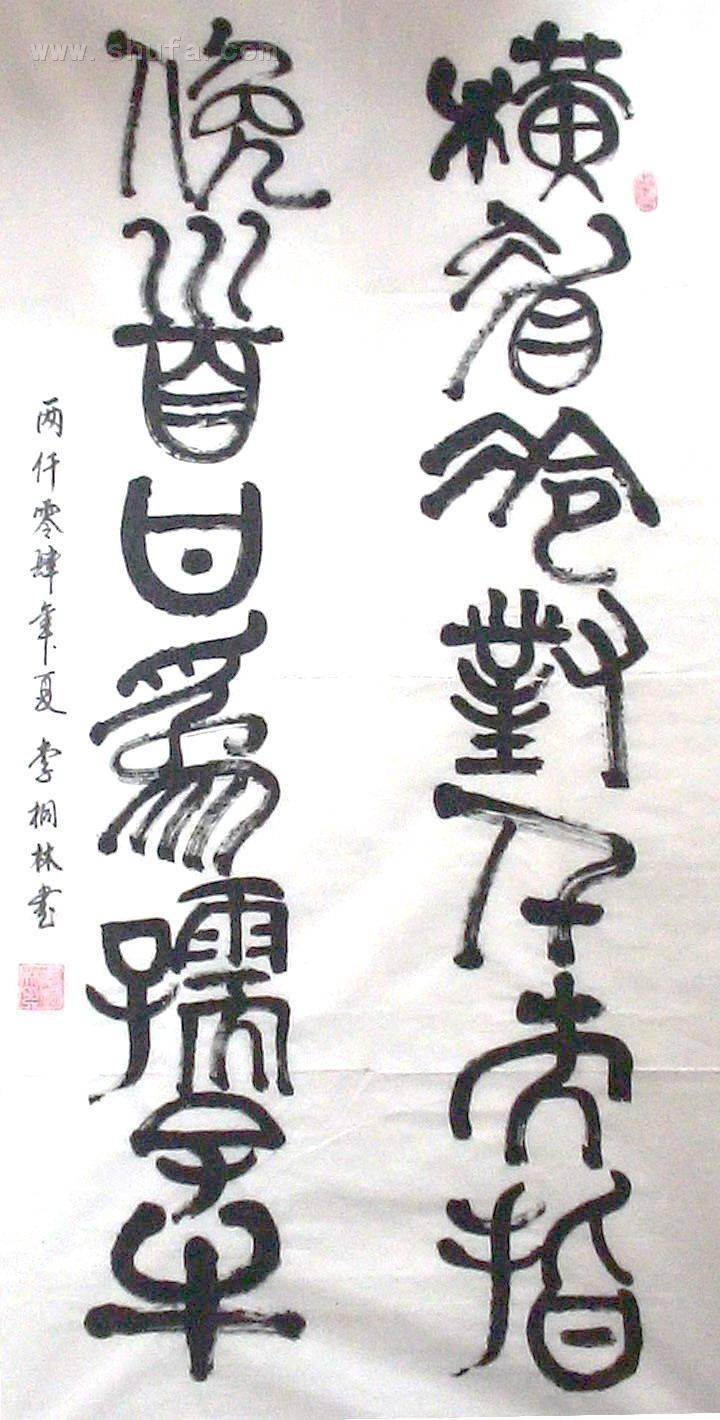 橫眉冷對千夫指
俛首甘爲孺子牛
两仟零肆年夏 李桐林书
www.shufa.com